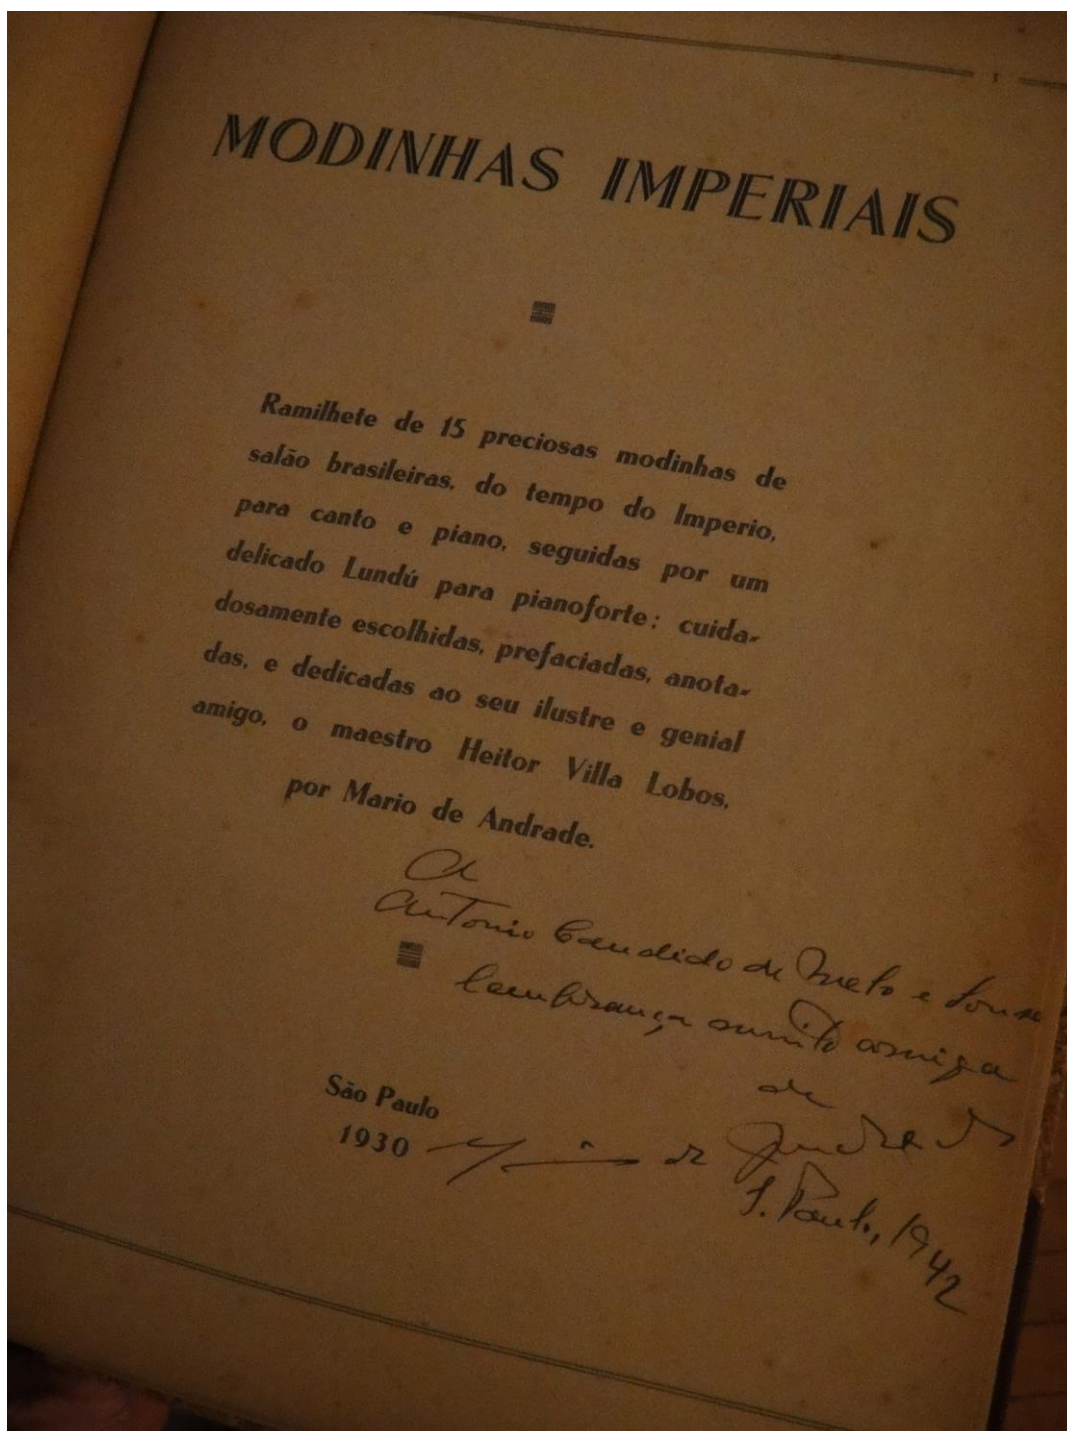 MODINHAS IMPERIAIS
Ramilhete de 15 preciosas modinhas de
salão brasileiras, do tempo do Imperio,
para canto e piano, seguidas por um
delicado Lundú para pianoforte; cuida-
dosamente escolhidas, prefaciadas, anota-
das, e dedicadas ao seu ilustre e genial
amigo, o maestro Heitor Villa Lobos,
por Mario de Andrade.
A
Antonio Candido de Melo e Sousa
lembrança muito amiga
de
São Paulo
1930
Mário de Andrade
S. Paulo, 1942